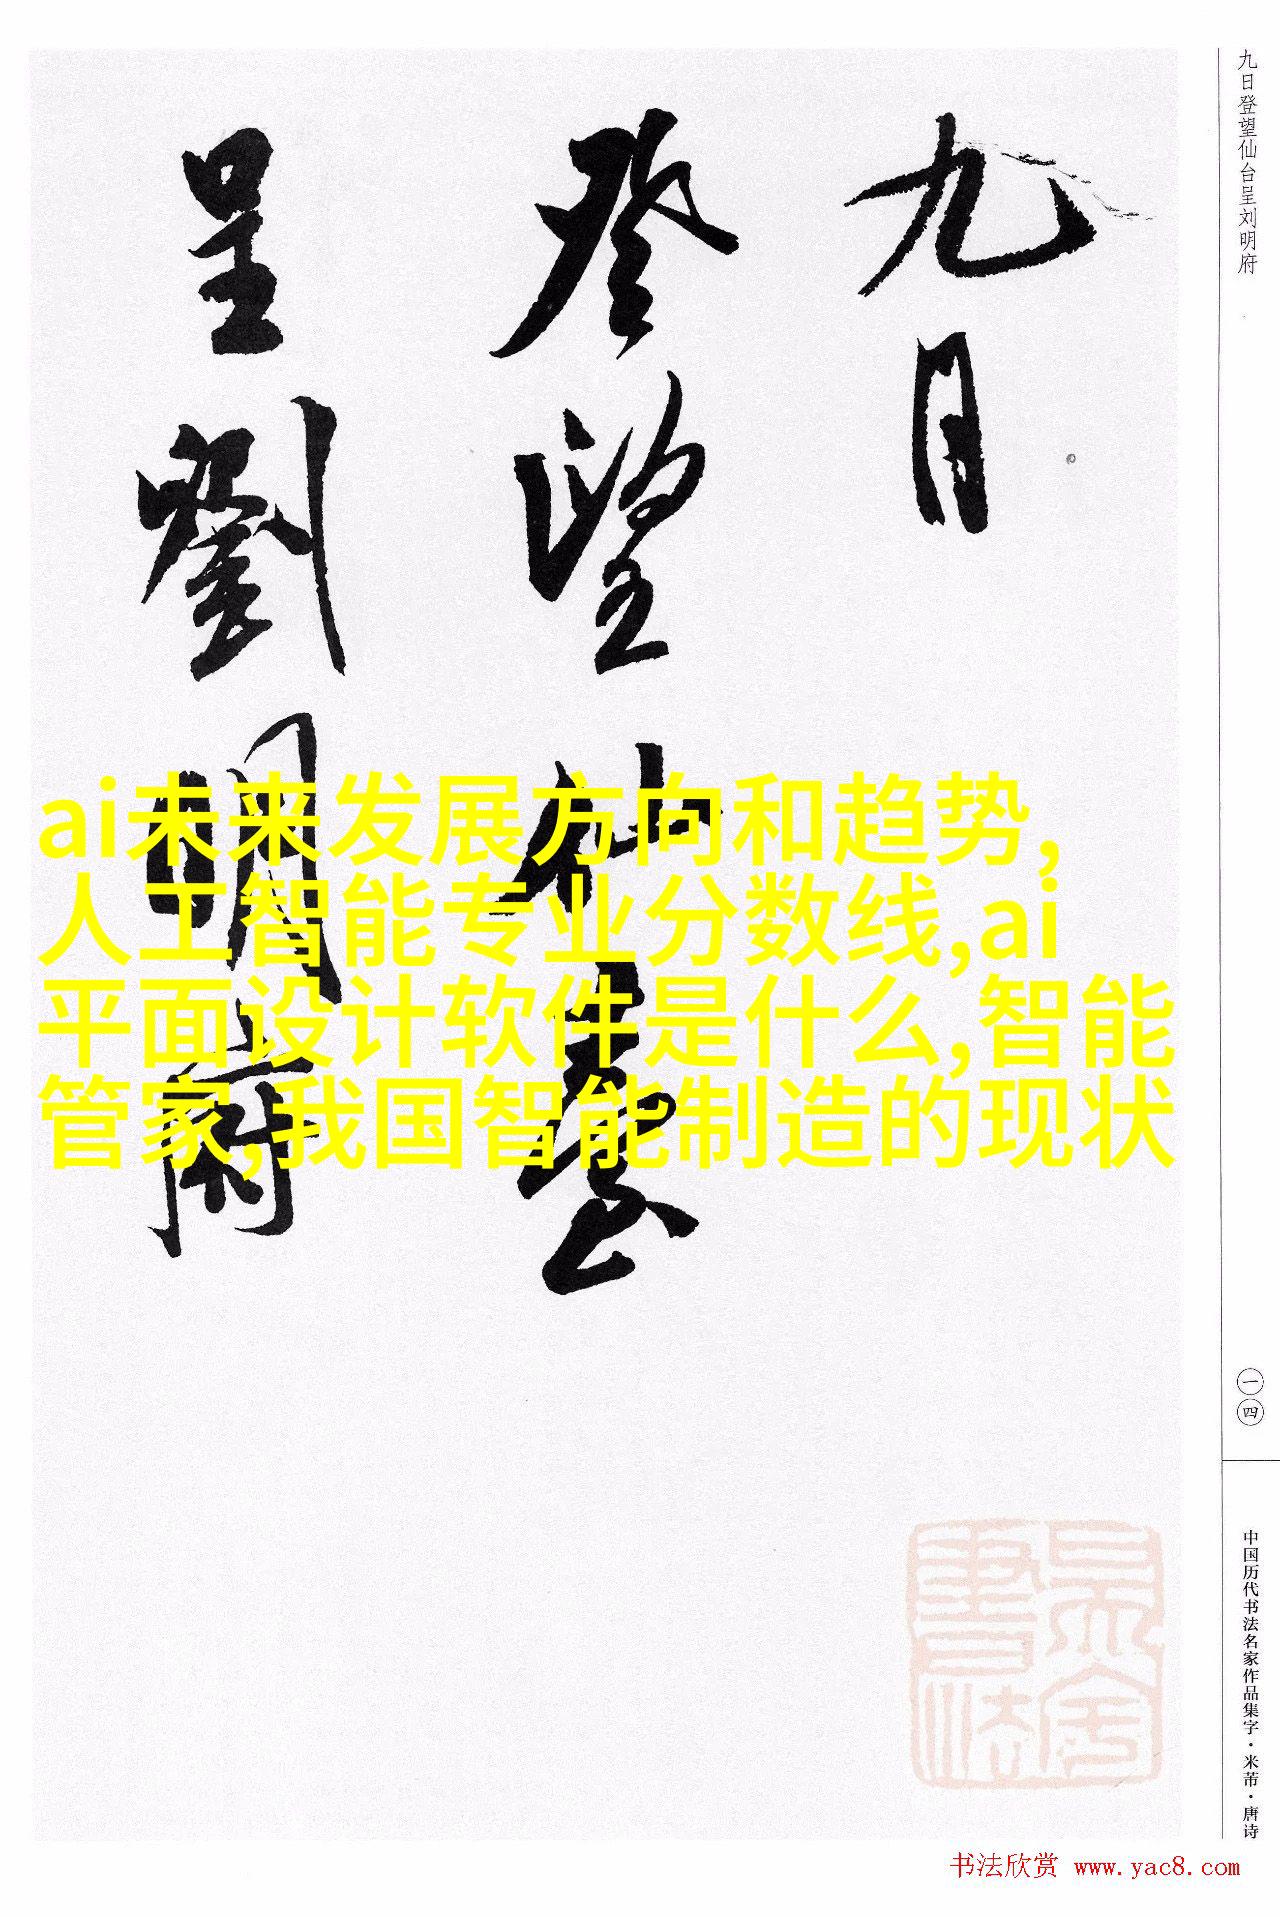 九日
登望仙臺
呈劉明府
九日登望仙台呈刘明府
ai未来发展方向和趋势,
人工智能专业分数线,ai
平面设计软件是什么,智能
管家,我国智能制造的现状
一四
中国历代书法名家作品集字·米芾·唐诗
书法欣赏 www.yac8.com